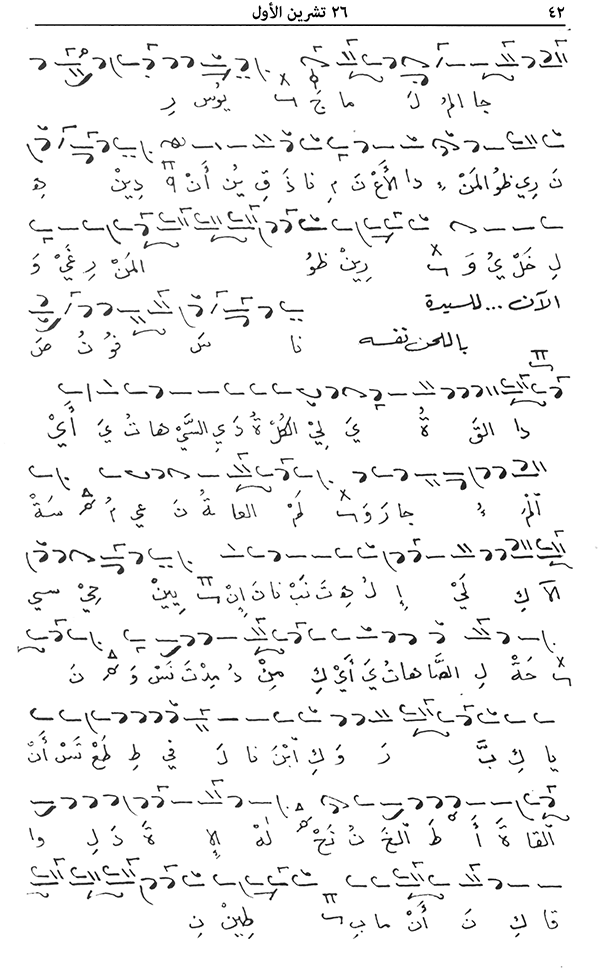 ٤٢ ٢٦ تشرين الأول
جا المُ لَ ما جَ يُوُس رِ
نَ رِي ظُو المَنْ ءِ دا الأَعْ نَ مِ نا ذَ قِ يُن أَنْ دِينْ هِـ
لِ خَلْ يُ وَ رِينْ ظُو المَنْ رِ غَيْ وَ
الآن ... للسيدة
باللحن نفسه نا سَ فُو نُ صَ
دا القَ ةُ يَ لِيْ الكُلْ ةُ دَ يِ السَّيْ ها تُ يَ أَيْ
أَلْمُ ءُ جا رَ وَ لَمْ العا ةُ نَ عِي مُ سَةْ
الآ كِ لَيْ إِ لُ هِـ تَ نَبْ نا نَ إِنْ يِيينْ حِيْ سي
حَةْ لِ الصَّا ها تُ يَ أَيْ كِ مِنْ دُ مِدْ تَ نَسْ وَ نَ
يا كِ بَّ رَ وَ كِ ابْنَ نا لَ في طِ طَعْ تَسْ أَنْ
ألْقا ةَ أَ طَ الخَ نُ نَحْ لَهْ الإِ ةَ دَ لِ وا
قا كِ نَ أَنْ ما بِ طِينْ نِ